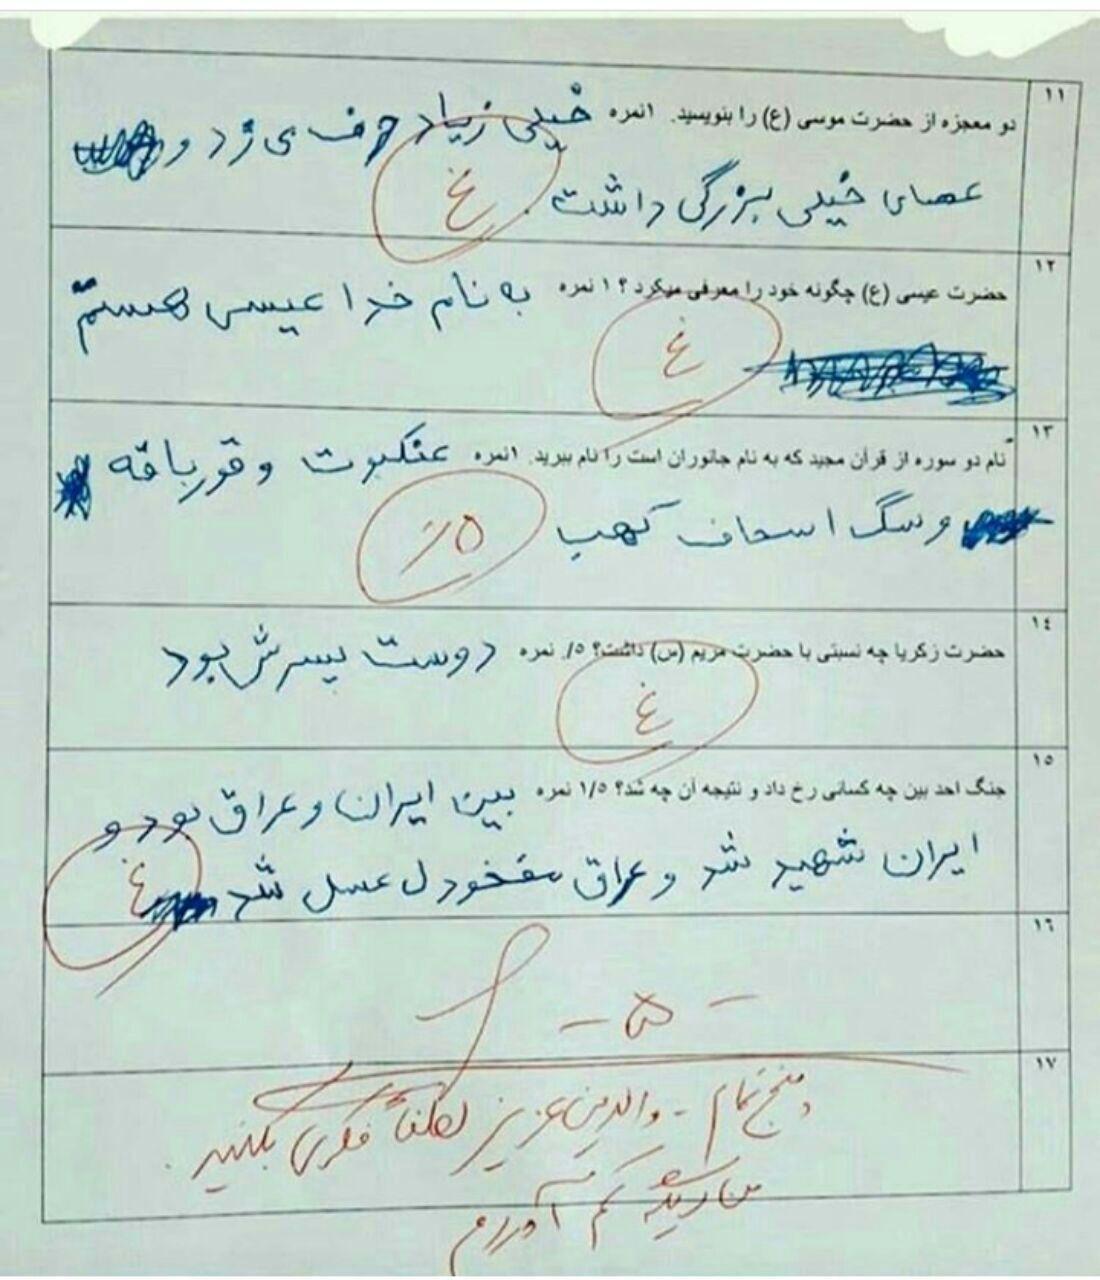 ۱۱
دو معجزه از حضرت موسی (ع) را بنویسید. ۱نمره خیلی زیاد حرف می زد و
عصای خیلی بزرگی داشت.
غ
۱۲
حضرت عیسی (ع) چگونه خود را معرفی میکرد؟ ۱ نمره به نام خدا عیسی هستم
غ
۱۳
نام دو سوره از قرآن مجید که به نام جانوران است را نام ببرید. ۱نمره عنکبوت و قورباقه
و سگ اسحاف کهب
۵/.
۱٤
حضرت زکریا چه نسبتی با حضرت مریم (س) داشت؟ ۵/. نمره دوست پسرش بود
غ
۱۵
جنگ احد بین چه کسانی رخ داد و نتیجه آن چه شد؟ ۱/۵ نمره بین ایران و عراق بود و
ایران شهید شد و عراق مفخودل عسل شد
غ
۱٦
- ۵ -
۱۷
پنج تمام - والدین عزیز لطفاً فکری بکنید.
من دیگه کم آوردم